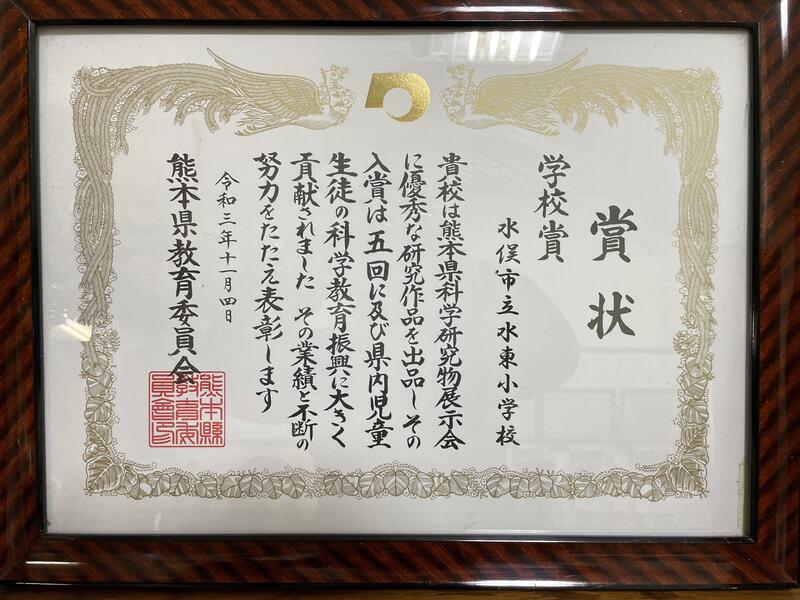 賞状
学校賞
水俣市立水東小学校
貴校は熊本県科学研究物展示会
に優秀な研究作品を出品しその
入賞は五回に及び県内児童
生徒の科学教育振興に大きく
貢献されました その業績と不断の
努力をたたえ表彰します
令和三年十一月四日
熊本県教育委員会
熊本縣
教育委
員會印